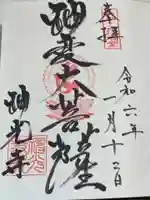 奉拝
令和六年
一月十三日
神変大菩薩
神光寺